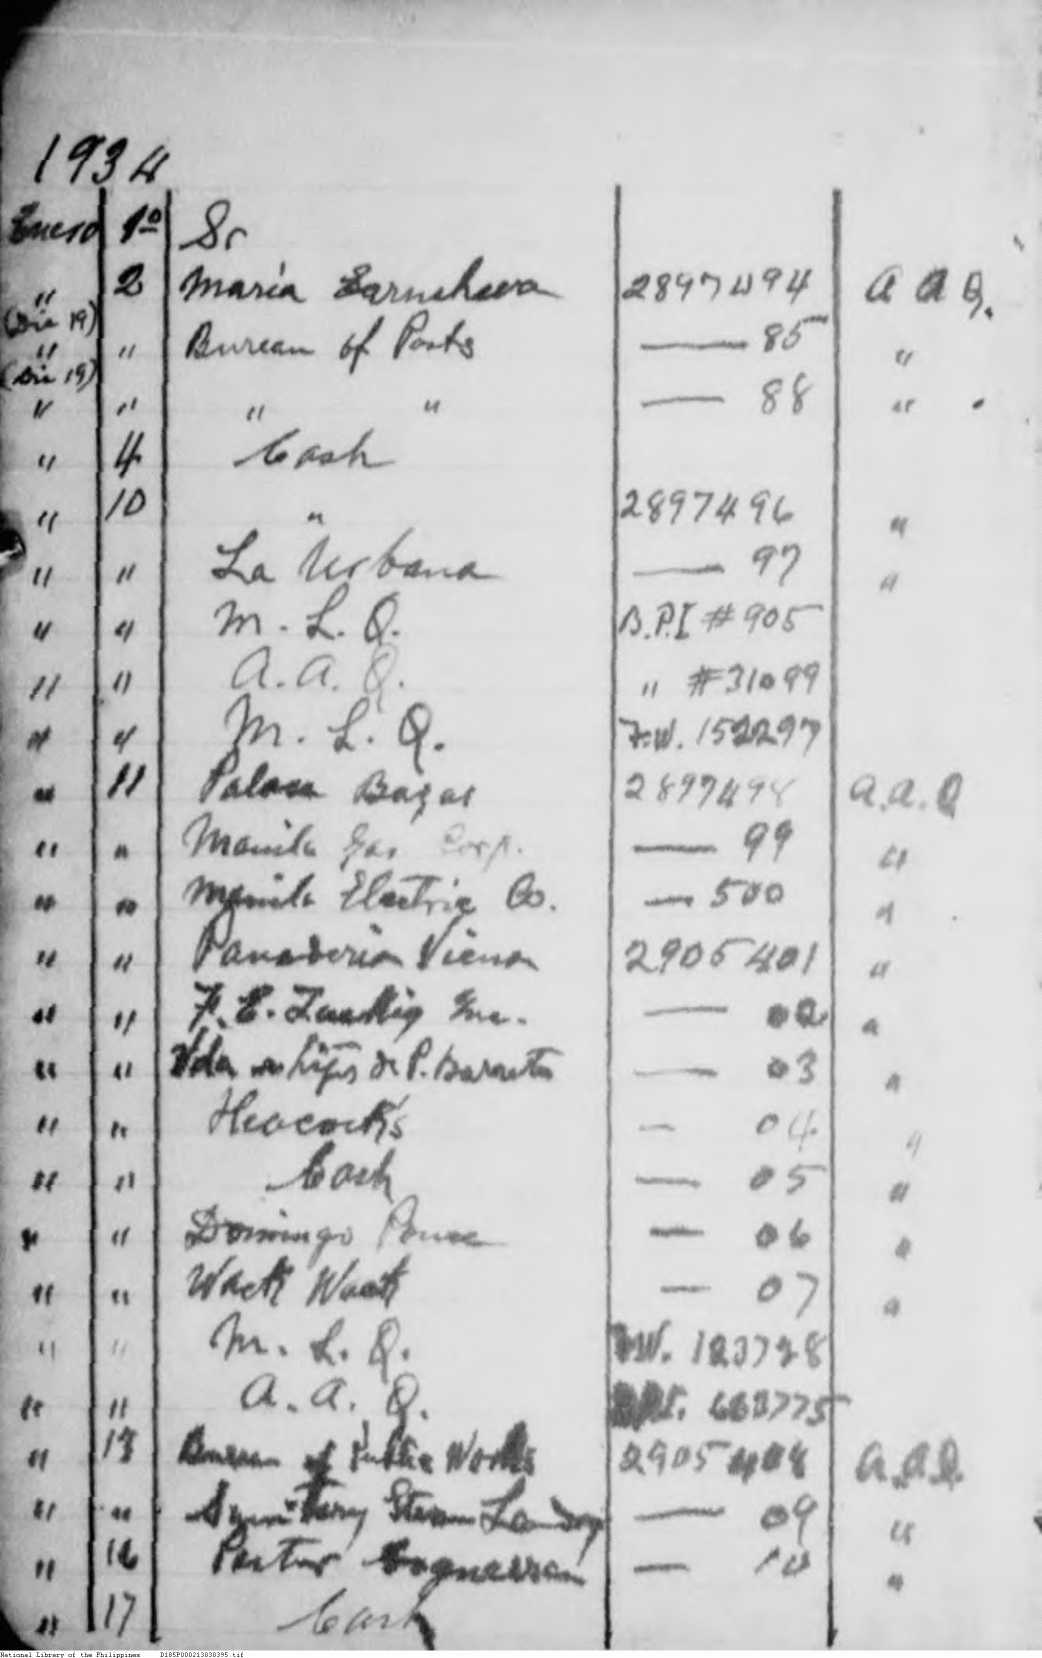 1934
Enero 1º Sr
" 2 Maria 2897494 A A Q.
(Dic 19)
" " Bureau of Posts — 85 "
(Dic 19)
" " " " — 88 "
" 4 Cash
" 10 " 2897496 "
" " La Urbana — 97 "
" " M. L. Q. B.P.I #905
" " A. A. Q. " #31099
" " M. L. Q. F.W. 152297
" 11 Palma Bazar 2897498 A.A.Q
" " Manila Gas Corp. — 99 "
" " Manila Electric Co. — 500 "
" " Panaderia Viena 2905401 "
" " F. E. Zuellig Inc. — 02 "
" " Vda e hijos de P. Barretto — 03 "
" " Heacock's — 04 "
" " Cash — 05 "
" " Domingo Ponce — 06 "
" " Wack Wack — 07 "
" " M. L. Q. F.W. 123728
" " A. A. Q. B.P.I. 663775
" 13 Bureau of Public Works 2905408 A.A.Q.
" " Sanitary Steam Landry — 09 "
" 16 Pastor — 10 "
" 17 Cash
National Library of the Philippines D185P000213838395.tif